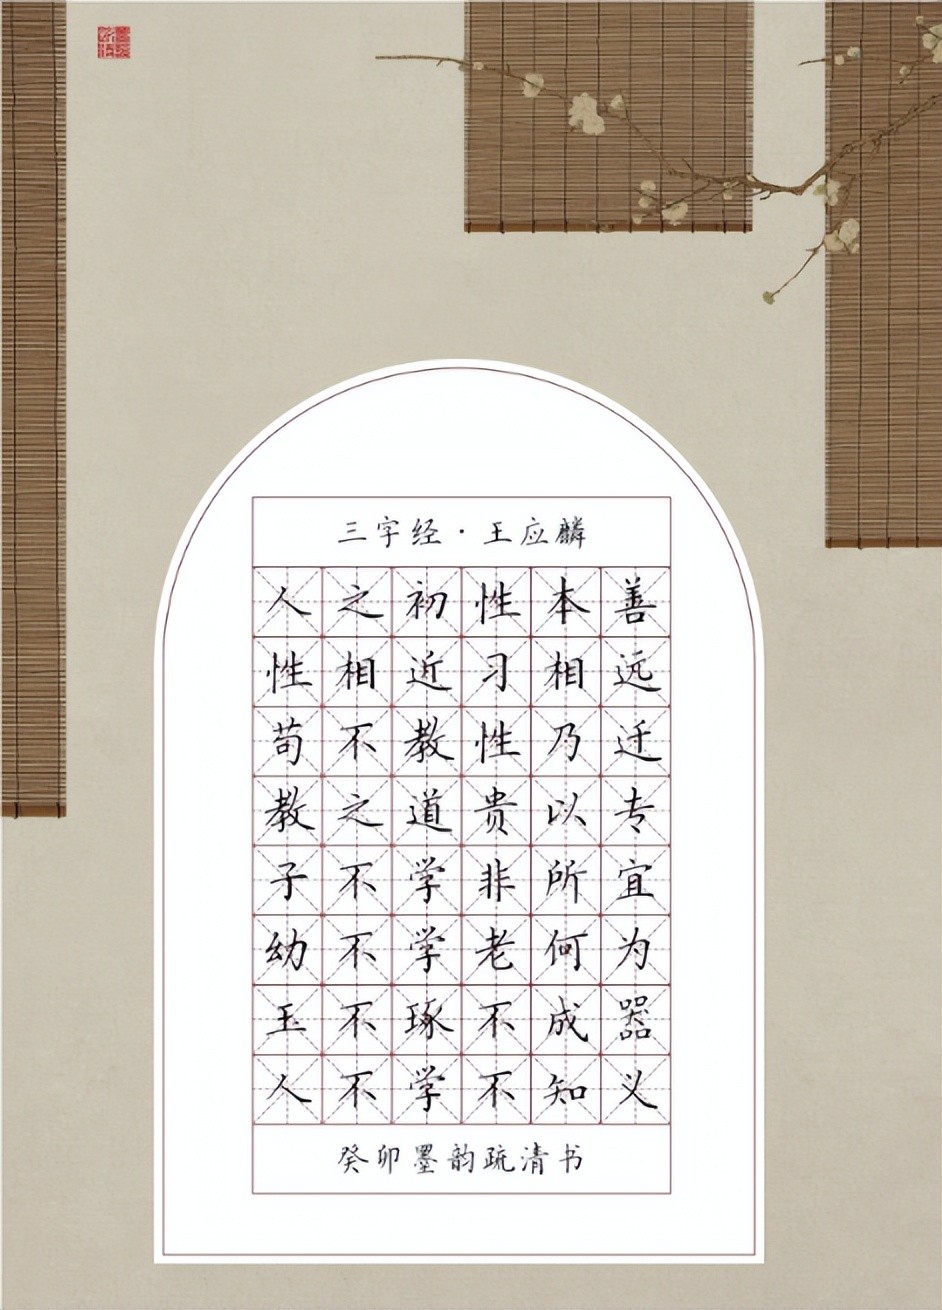 三字经·王应麟
人之初性本善
性相近习相远
苟不教性乃迁
教之道贵以专
子不学非所宜
幼不学老何为
玉不琢不成器
人不学不知义
癸卯墨韵疏清书